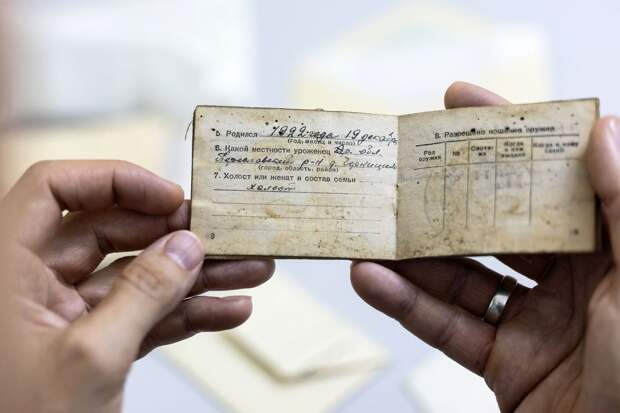 5. Родился 1922 года 19 декабря
(год, месяц и число)
6. Какой местности уроженец обл.
р-н д.
(город, область, район)
7. Холост или женат и состав семьи
холост
8. Разрешено ношение оружия
Род оружия № Когда и кем выдано Когда и кому сдано